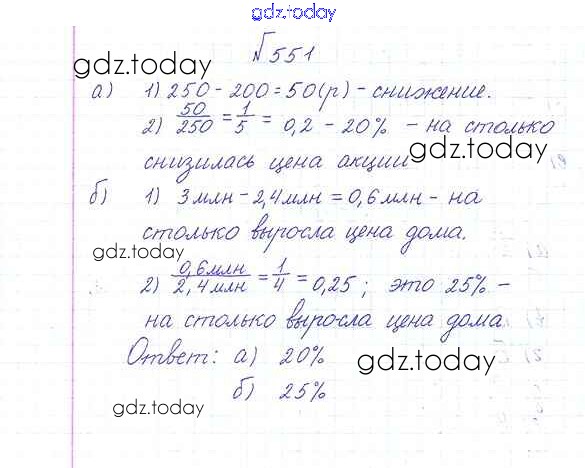 gdz.today
№551
gdz.today
а) 1) 250 - 200 = 50 (р) - снижение.
2) 50/250 = 1/5 = 0,2 - 20% - на столько
снизилась цена акции
gdz.today
б) 1) 3 млн - 2,4 млн = 0,6 млн - на
столько выросла цена дома.
gdz.today
2) 0,6 млн/2,4 млн = 1/4 = 0,25; это 25% -
на столько выросла цена дома.
Ответ: а) 20%
gdz.today
б) 25%
gdz.today